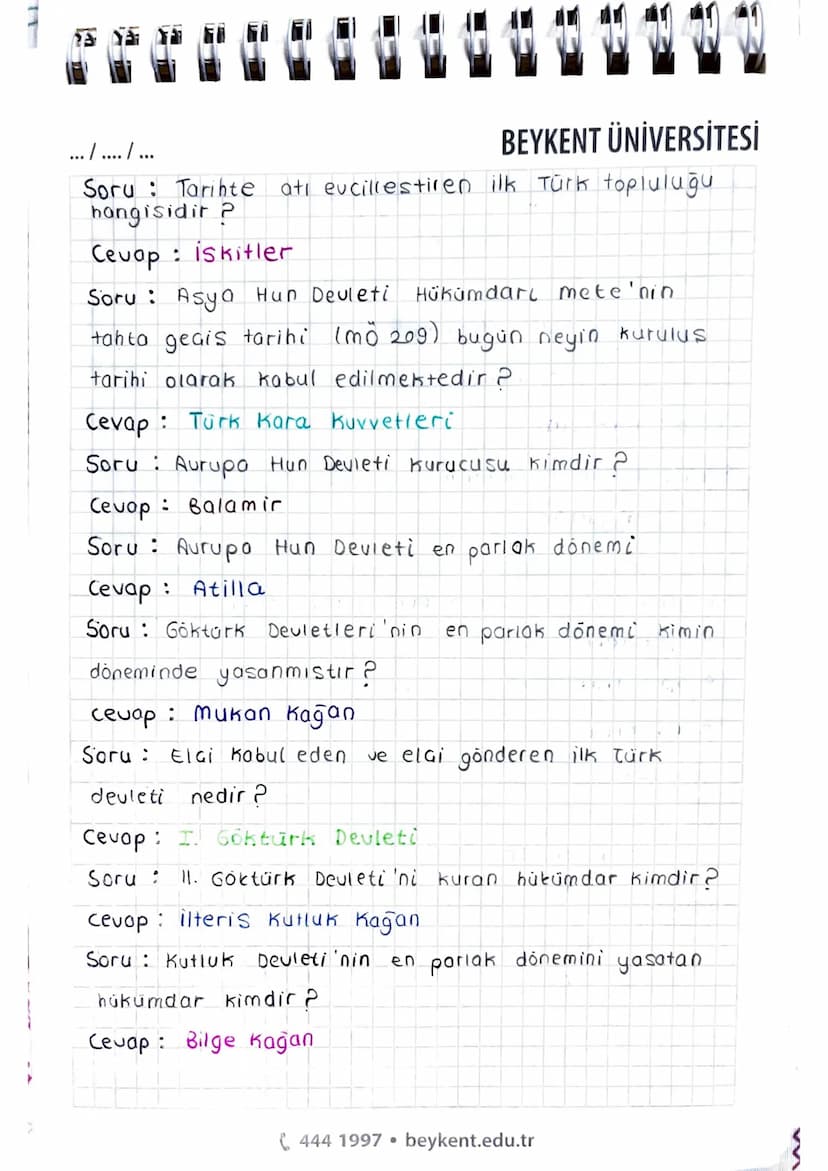 ... / .... / ...
BEYKENT ÜNİVERSİTESİ
Soru : Tarihte atı evcillestiren ilk Türk topluluğu
hangisidir ?
Cevap : İskitler
Soru : Asya Hun Devleti Hükümdarı mete'nin
tahta gecis tarihi (mÖ 209) bugün neyin kurulus
tarihi olarak kabul edilmektedir ?
Cevap : Türk Kara Kuvvetleri
Soru : Avrupa Hun Devleti kurucusu kimdir ?
Cevap : Balamir
Soru : Avrupa Hun Devleti en parlak dönemi
Cevap : Atilla
Soru : Göktürk Devletleri'nin en parlak dönemi kimin
döneminde yasanmıstır ?
Cevap : Mukan Kağan
Soru : Elci kabul eden ve elci gönderen ilk Türk
devleti nedir ?
Cevap : I. Göktürk Devleti
Soru : II. Göktürk Devleti'ni kuran hükümdar kimdir ?
Cevap : İlteris Kutluk Kağan
Soru : Kutluk Devleti'nin en parlak dönemini yasatan
hükümdar kimdir ?
Cevap : Bilge Kağan
444 1997 • beykent.edu.tr